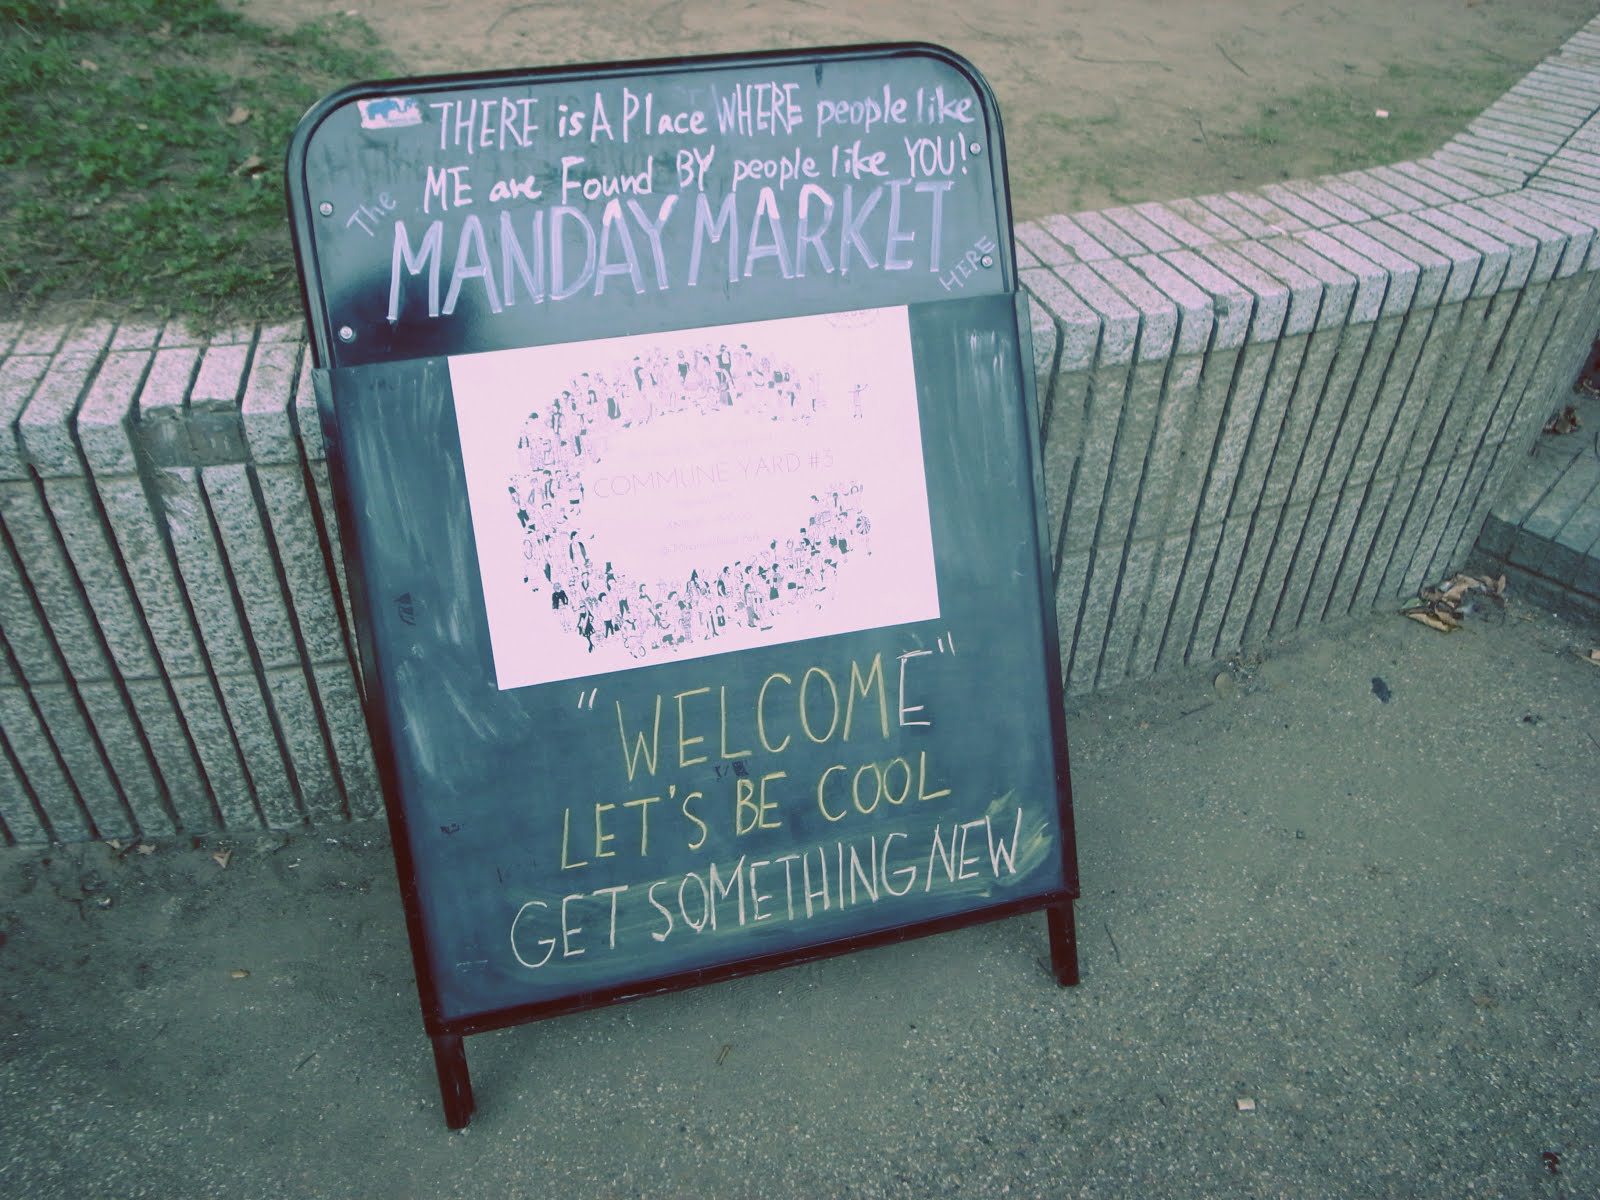 THERE is A Place WHERE people like
ME are Found BY people like YOU!
The
MANDAY MARKET
HERE
COMMUNE YARD #3
"WELCOME"
LET'S BE COOL
GET SOMETHING NEW